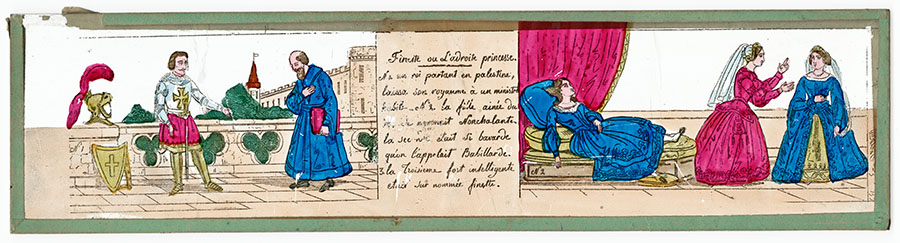 Finette ou L'adroite princesse.
N.1 un roi partant en palestine,
laissa son royaume à un ministre
habile. N.2 la fille ainée du
roi se nommait Nonchalante.
la seconde était si bavarde
qu'on l'appelait Babillarde.
la troisième fort intelligente
était surnommée finette.
N.1
N.2